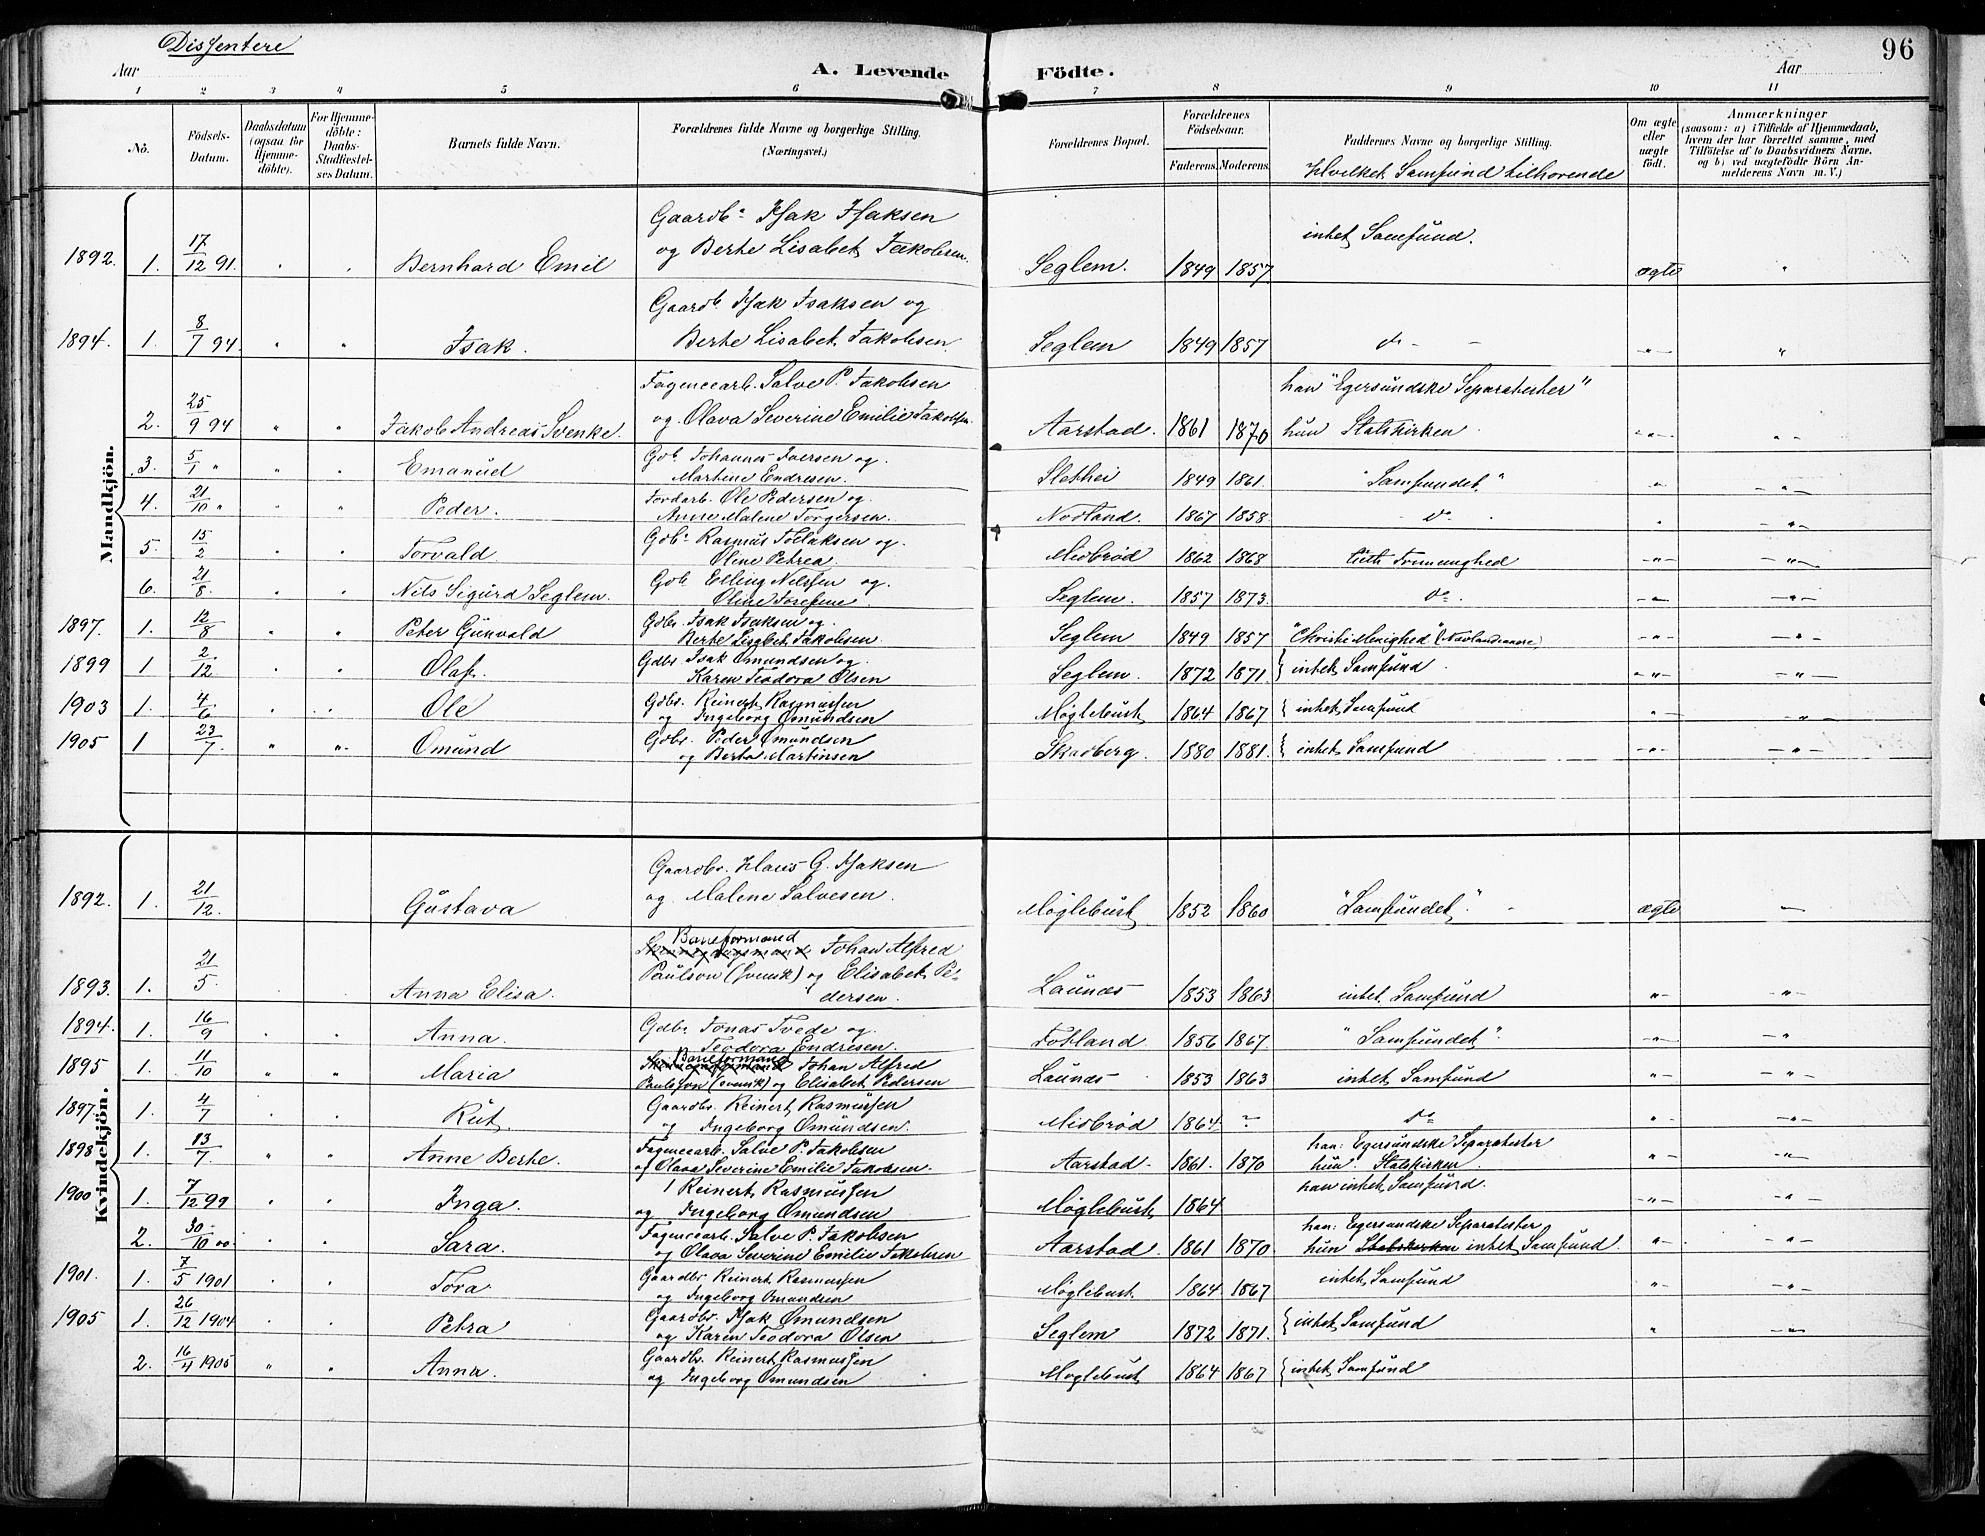 Dissentere
96
Aar
A. Levende Födte.
Aar
1 2 3 4 5 6 7 8 9 10 11
No.
Födsels-Datum.
Daabsdatum (ogsaa for Hjemme-döbte).
For Hjemme-döbte: Daabs-Stadfæstel-ses Datum.
Barnets fulde Navn.
Forældrenes fulde Navne og borgerlige Stilling.
(Næringsvei.)
Forældrenes Bopæl.
Forældrenes Födselsaar.
Faderens. Moderens.
Faddernes Navne og borgerlige Stilling.
Hvilket Samfund tilhørende
Om ægte eller uægte födt.
Anmærkninger
(saasom: a) i Tilfælde af Hjemmedaab, hvem der har forrettet samme, med Tilföielse af to Daabsvidners Navne, og b) ved uægtefödte Börn Anmelderens Navn m. V.)
Mandkjön.
Gaardbr Isak Isaksen intet Samfund.
1892. 1. 17/12 91. Bernhard Emil og Berte Lisabet Jakobsen. Seglem. 1849 1857 ægte "
Gaardb. Isak Isaksen og
1894. 1. 8/7 94. " " Isak. Berte Lisabet Jakobsen. Seglem 1849 1857 do - -"- "
Fayencearb. Salve P. Jakobsen han "Egersundske Separatister"
2. 25/9 94 " " Jakob Andreas Svenke. og Olava Severine Emilie Jakobsen Aarstad. 1861 1870 hun Statskirken -"- -"-
Gdb. Johannes Iversen og
3. 5/1 " " " Emanuel Martine Endresen. Sletthei 1849 1861. "Samfundet" " -"-
Jordarb. Ole Pedersen og
4. 21/10 " " " Peder. Anne Malene Torgersen. Nodland. 1867 1858 do " -"-
Gdbr Rasmus Tollaksen og
5. 15/2 " " Torvald Oline Petrea Midbrød 1862 1868 Luth Frimenighed -"- -"-
Gdb Elling Nilssen og
6. 21/8. " " Nils Sigurd Seglem. Oline Josefine. Seglem. 1857 1873. do. -"- -"-
Gdbr. Isak Isaksen og
1897. 1. 12/8 " " Peter Gunvald Berte Lisabet Jakobsen. Seglem 1849 1857 "Christi Menighed" -"- -"-
Gdbr. Isak Omundsen og
1899 1 2/12 " " Olaf. Karen Teodora Olsen Seglem. 1872 1871. { intet Samfund -"- -"-
Gdbr. Reinert Rasmussen
1903 1. 4/6 " " Ole og Ingeborg Omundsen Møglebust 1864 1867 { intet Samfund -"- -"-
Gdbr. Peder Omundsen
1905 1 23/7. " " Omund og Berta Martinsen Skadberg. 1880 1881. { intet Samfund -"- -"-
Kvindekjön.
Gaardbr. Hans G. Isaksen
1892. 1. 21/12. Gustava og Malene Salvesen. Møglebust 1852 1860 "Samfundet" ægte -
Baneformand Johan Alfred
Paulson (svensk) og Elisabet Pe-
1893. 1. 21/5. Anna Elisa. dersen. Launes 1853 1863 intet Samfund -"- -"-
Gdbr Jonas Tvede og
1894. 1. 16/9 Anna. Teodora Endresen. Fotland 1856 1867. "Samfundet" -"- -"
Baneformand Johan Alfred
1895 1. 11/10 " " Maria Paulsson (svensk) og Elisabet Pedersen Launes 1853 1863 intet Samfund " -"-
Gaardbr. Reinert Rasmussen
1897. 1. 4/7 " " Rut. og Ingeborg Omundsen. Midbrød 1864. - do " -"-
Fayencearb. Salve P. Jakobsen han: Egersundske Separatister
1898. 1. 13/7. " " Anne Berte. og Olava Severine Emilie Jakobsen. Aarstad. 1861. 1870 hun: Statskirken. " -"-
Reinert Rasmussen han intet Samfund.
1900 1. 7/12 99 " " Inga. og Ingeborg Omundsen Møglebust 1864 -"- -"-
Fayencearb. Salve P. Jakobsen han: Egersundske Separatister
2. 30/10 00. " " Sara. og Olava Severine Emilie Jakobsen Aarstad. 1861 1870. hun Statskirken intet Samfund. " -"-
Gaardbr. Reinert Rasmussen intet Samfund
1901. 1. 7/5 1901 Tora. og Ingeborg Omundsen Møglebust. 1864. 1867 " -"-
Gaardbr. Isak Omundsen
1905 1. 26/12 1904 " " Petra og Karen Teodora Olsen Seglem 1872 1871. { intet Samfund " -"-
Gaardbr. Reinert Rasmussen
2. 16/4 1905 " " Anna. og Ingeborg Omundsen Møglebust 1864 1867 { intet Samfund